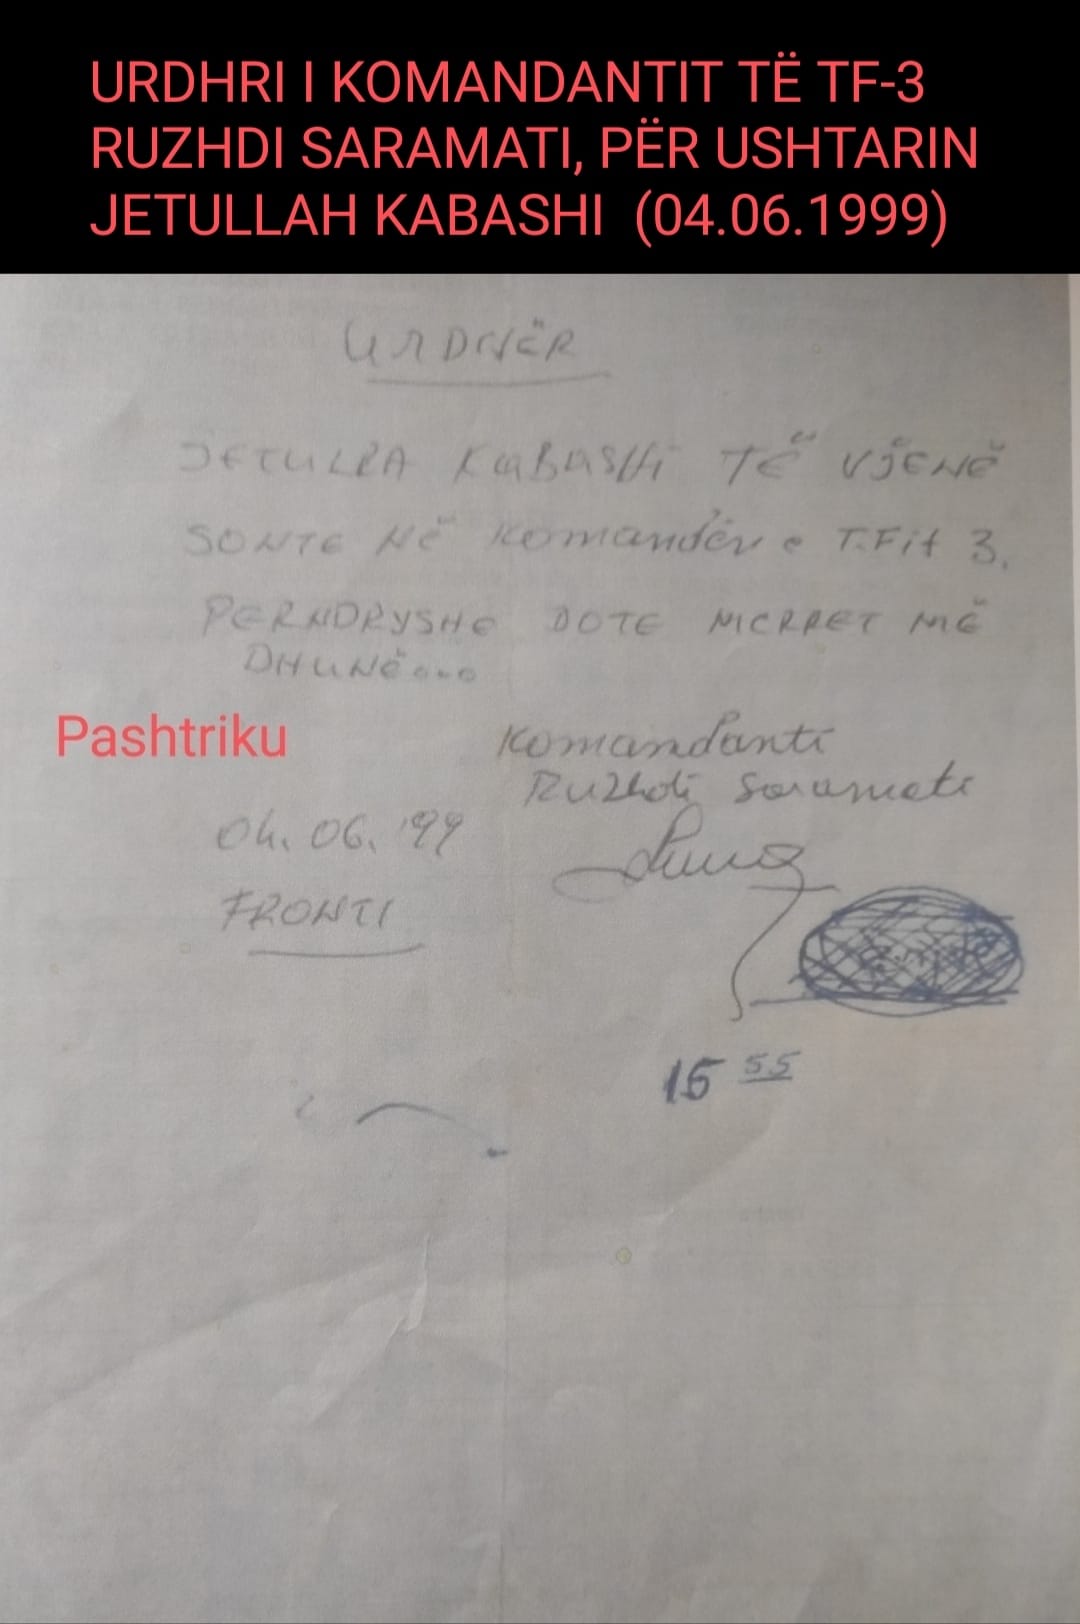 URDHRI I KOMANDANTIT TË TF-3
RUZHDI SARAMATI, PËR USHTARIN
JETULLAH KABASHI (04.06.1999)
URDHËR
JETULLA KABASHI TË VJENË
SONTE NË Komandën e T.Fit 3.
PERNDRYSHE DOTE MERRET ME
DHUNË...
Pashtriku
Komandanti
Ruzhdi Saramati
04. 06. '99
FRONTI
15 55